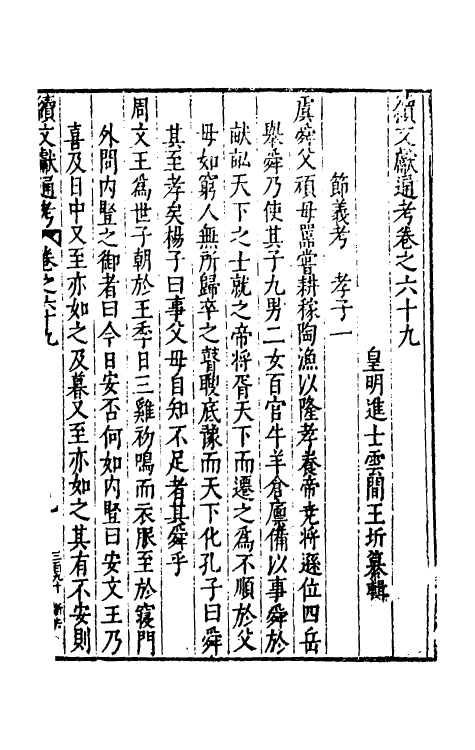 續文獻通考卷之六十九
皇明進士雲間王圻纂輯
節義考　孝子一
虞舜父頑母嚚嘗耕稼陶漁以隆孝養帝尭將遜位四岳
舉舜乃使其子九男二女百官牛羊倉廩備以事舜於
献畝天下之士就之帝將胥天下而遷之為不順於父
母如窮人無所歸卒之瞽瞍底豫而天下化孔子曰舜
其至孝矣楊子曰事父母自知不足者其舜乎
周文王為世子朝於王季日三雞初鳴而衣服至於寢門
外問內豎之御者曰今日安否何如內豎曰安文王乃
喜及日中又至亦如之及暮又至亦如之其有不安則
續文獻通考 卷之六十九